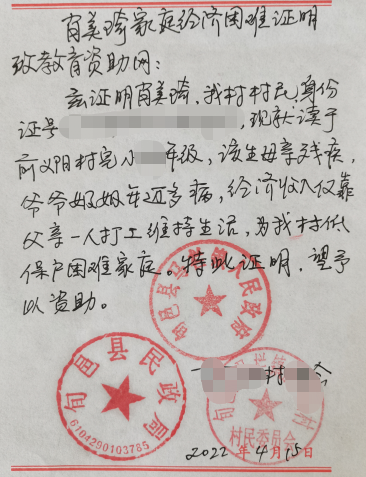 肖美琦家庭经济困难证明
致教育资助网:
兹证明肖美琦,我村村民,身份
证号,现就读于
前义阳村完小年级,该生母亲残疾,
爷爷奶奶年迈多病,经济收入仅靠
父亲一人打工维持生活,为我村低
保户困难家庭。特此证明,望予
以资助。
旬邑县马栏镇人民政府
旬邑县民政局
6104290103785
村
村民委员会
2022年4月15日